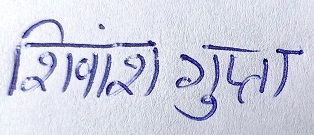 शिवांश गुप्ता